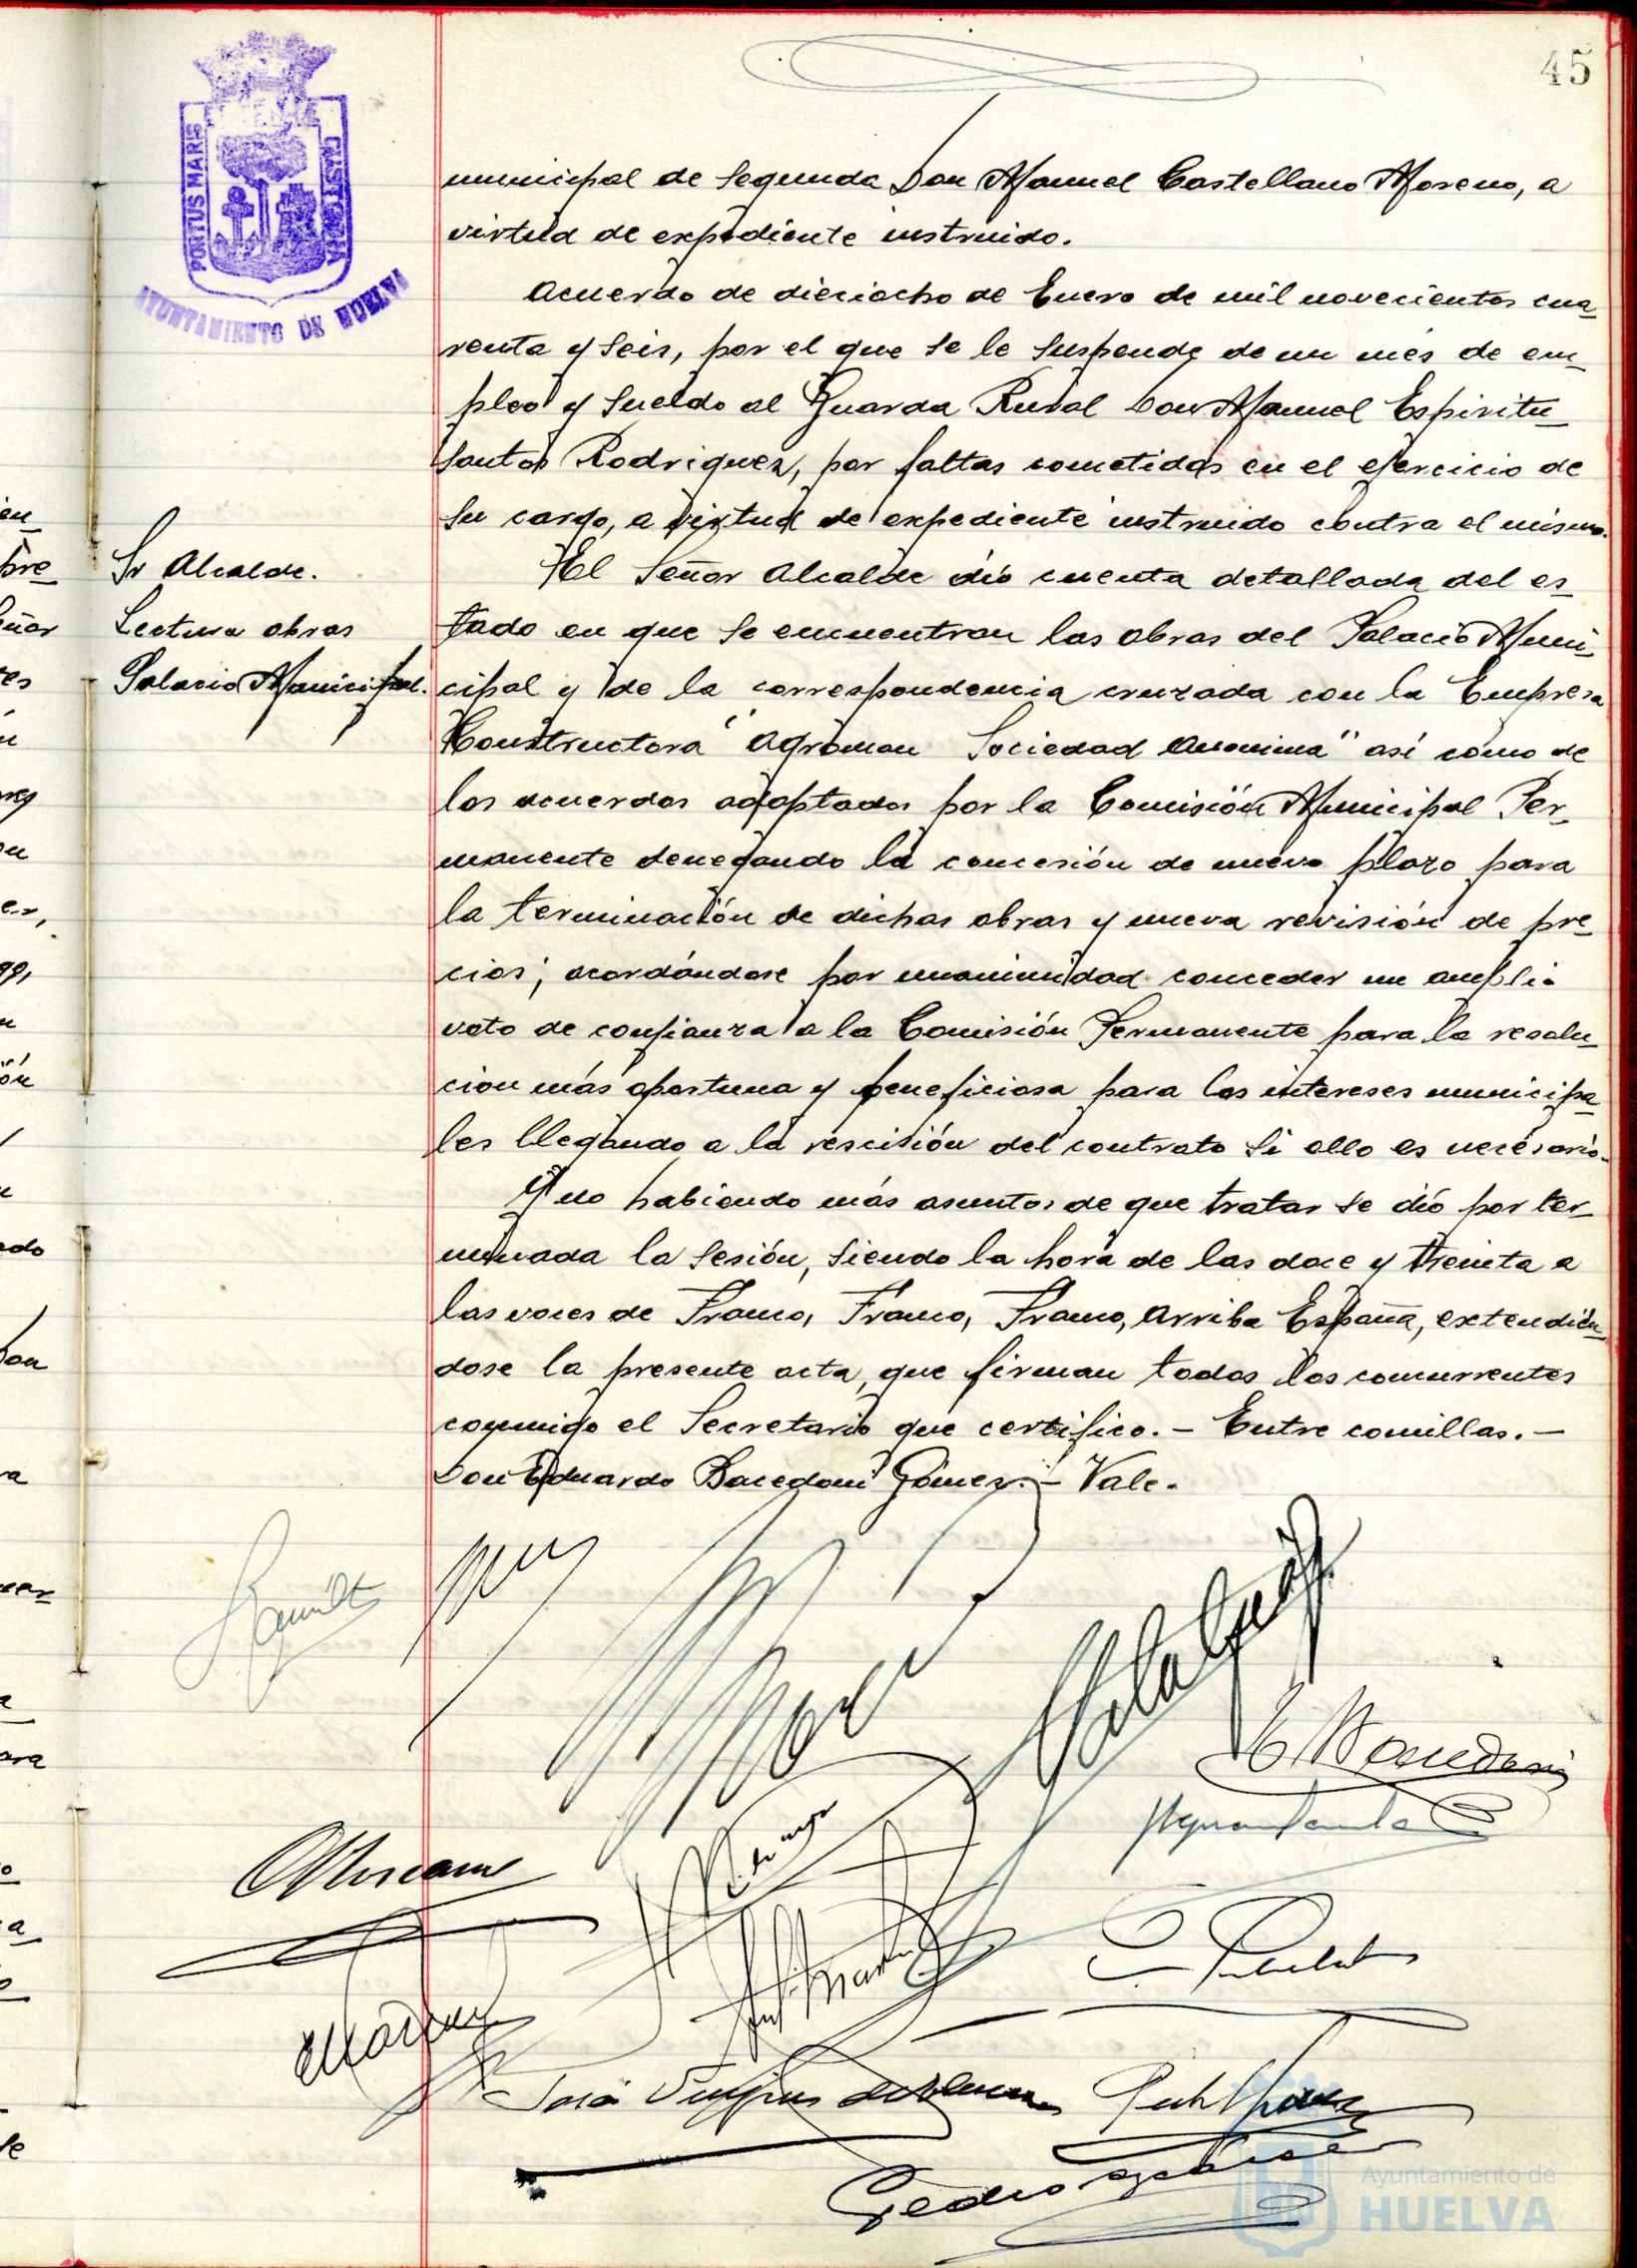 45
PORTUS MARIS
ET TERRÆ CUSTODIA
AYUNTAMIENTO DE HUELVA
municipal de Segunda Don Manuel Castellano Moreno, a
virtud de expediente instruido.
Acuerdo de dieciocho de Enero de mil novecientos cua
renta y seis, por el que se le suspende de un mes de em
pleo y sueldo al Guarda Rural Don Manuel Espiritu
Santo Rodriguez, por faltas cometidas en el ejercicio de
su cargo, a virtud de expediente instruido contra el mismo.
Sr Alcalde.
Lectura obras
Palacio Municipal.
El Señor Alcalde dió cuenta detallada del es
tado en que se encuentran las obras del Palacio Muni
cipal y de la correspondencia cruzada con la Empresa
Constructora "Agroman Sociedad Anonima" así como de
los acuerdos adoptados por la Comisión Municipal Per
manente denegando la concesión de nuevo plazo para
la terminación de dichas obras y nueva revisión de pre
cios; acordándose por unanimidad conceder un amplio
voto de confianza a la Comisión Permanente para la resolu
cion más oportuna y beneficiosa para los intereses municipa
les llegando a la rescisión del contrato si ello es necesario.
Y no habiendo más asuntos de que tratar se dió por ter
minada la sesión, siendo la hora de las doce y treinta a
las voces de Franco, Franco, Franco, Arriba España, extendién
dose la presente acta, que firman todos los concurrentes
conmigo el Secretario que certifico. - Entre comillas. -
Don Eduardo Bacedoni Gómez. - Vale.
Pedro
Ayuntamiento de
HUELVA